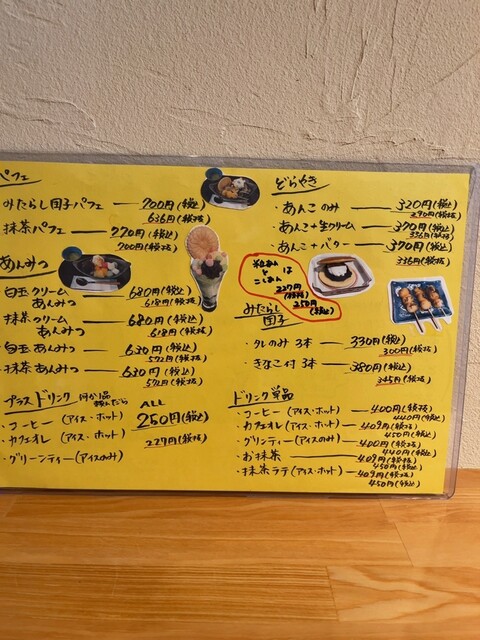 パフェ
みたらし団子パフェ — 700円(税込)
636円(税抜)
・抹茶パフェ — 770円(税込)
700円(税抜)
あんみつ
・白玉クリームあんみつ — 680円(税込)
618円(税抜)
・抹茶クリームあんみつ — 680円(税込)
618円(税抜)
・白玉あんみつ — 630円(税込)
572円(税抜)
・抹茶あんみつ — 630円(税込)
572円(税抜)
プラスドリンク 何か1品頼んだら
・コーヒー(アイス・ホット)
・カフェオレ(アイス・ホット)
・グリーンティー(アイスのみ)
ALL
250円(税込)
227円(税抜)
どらやき
・あんこのみ — 320円(税込)
290円(税抜)
・あんこ+生クリーム — 370円(税込)
336円(税抜)
・あんこ+バター — 370円(税込)
336円(税抜)
粒あん
と
こしあん
は
227円(税抜)
250円(税込)
みたらし団子
・タレのみ 3本 — 330円(税込)
300円(税抜)
・きなこ付 3本 — 380円(税込)
345円(税抜)
ドリンク単品
・コーヒー(アイス・ホット) — 400円(税抜)
440円(税込)
・カフェオレ(アイス・ホット) — 409円(税抜)
450円(税込)
・グリンティー(アイスのみ) — 400円(税抜)
440円(税込)
・お抹茶 — 409円(税抜)
450円(税込)
・抹茶ラテ(アイス・ホット) — 409円(税抜)
450円(税込)